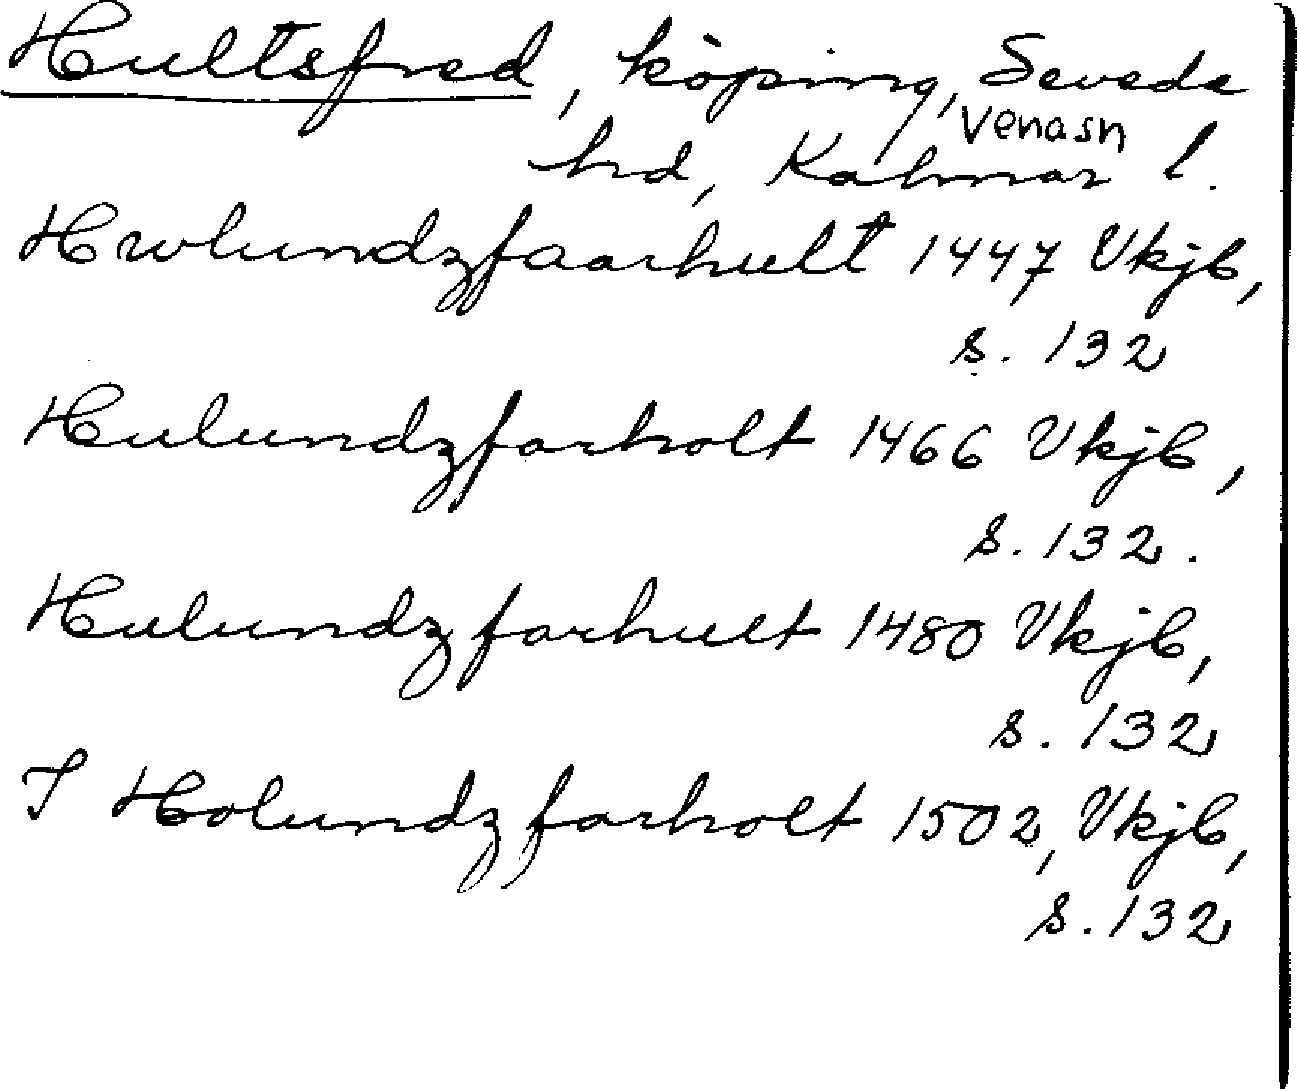 Hultsfred, köping, Sevede
Vena sn
hd, Kalmar l.
Hwlundzfaarhult 1447 Vkjb,
s. 132
Hulundzfarholt 1466 Vkjb,
s. 132.
Hulundzfarhult 1480 Vkjb,
s. 132
I Holundzfarholt 1502, Vkjb,
s. 132